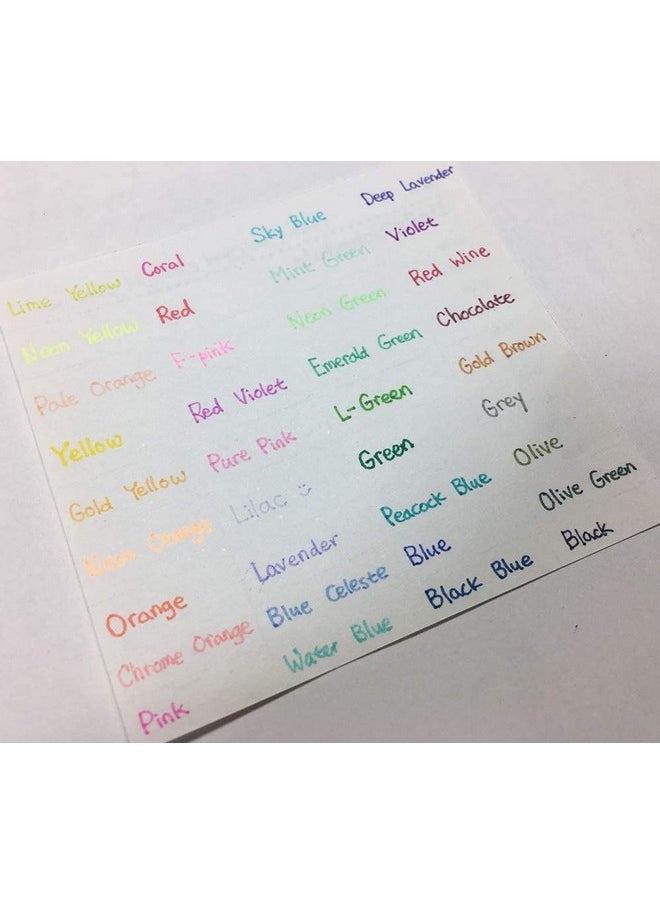 Lime Yellow
Neon Yellow
Pale Orange
Yellow
Gold Yellow
Neon Orange
Orange
Chrome Orange
Pink
Coral
Red
F-pink
Red Violet
Pure Pink
Lilac ツ
Lavender
Blue Celeste
Water Blue
Sky Blue
Mint Green
Neon Green
Emerald Green
L-Green
Green
Peacock Blue
Blue
Black Blue
Deep Lavender
Violet
Red Wine
Chocolate
Gold Brown
Grey
Olive
Olive Green
Black